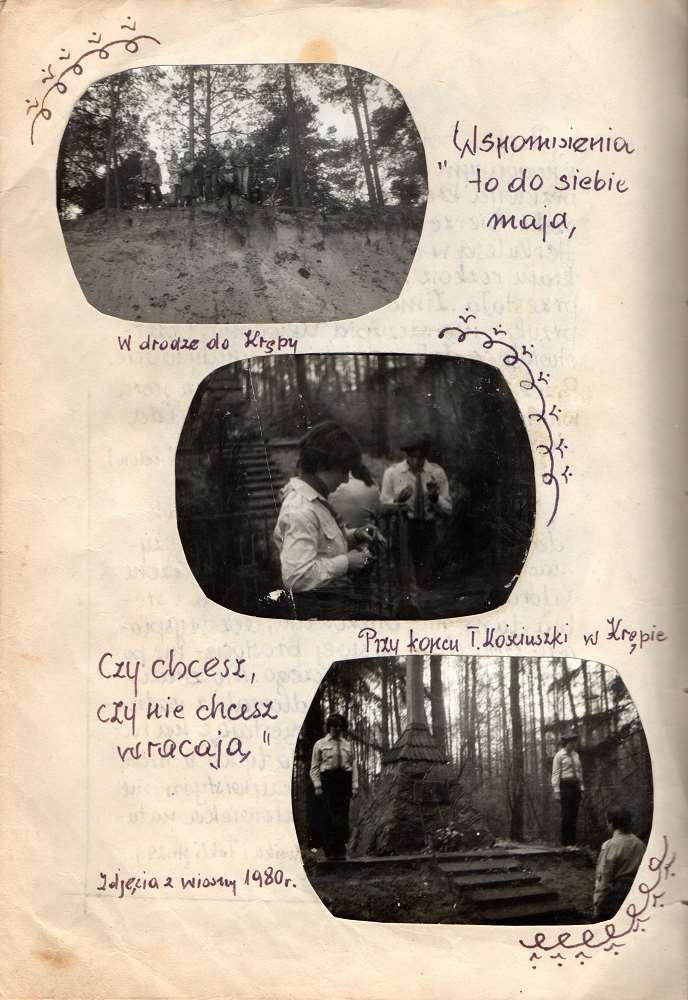 Wspomnienia
" to do siebie
mają,
W drodze do Krępy
Przy kopcu T. Kościuszki w Krępie
Czy chcesz,
czy nie chcesz
wracają, "
Zdjęcia z wiosny 1980 r.